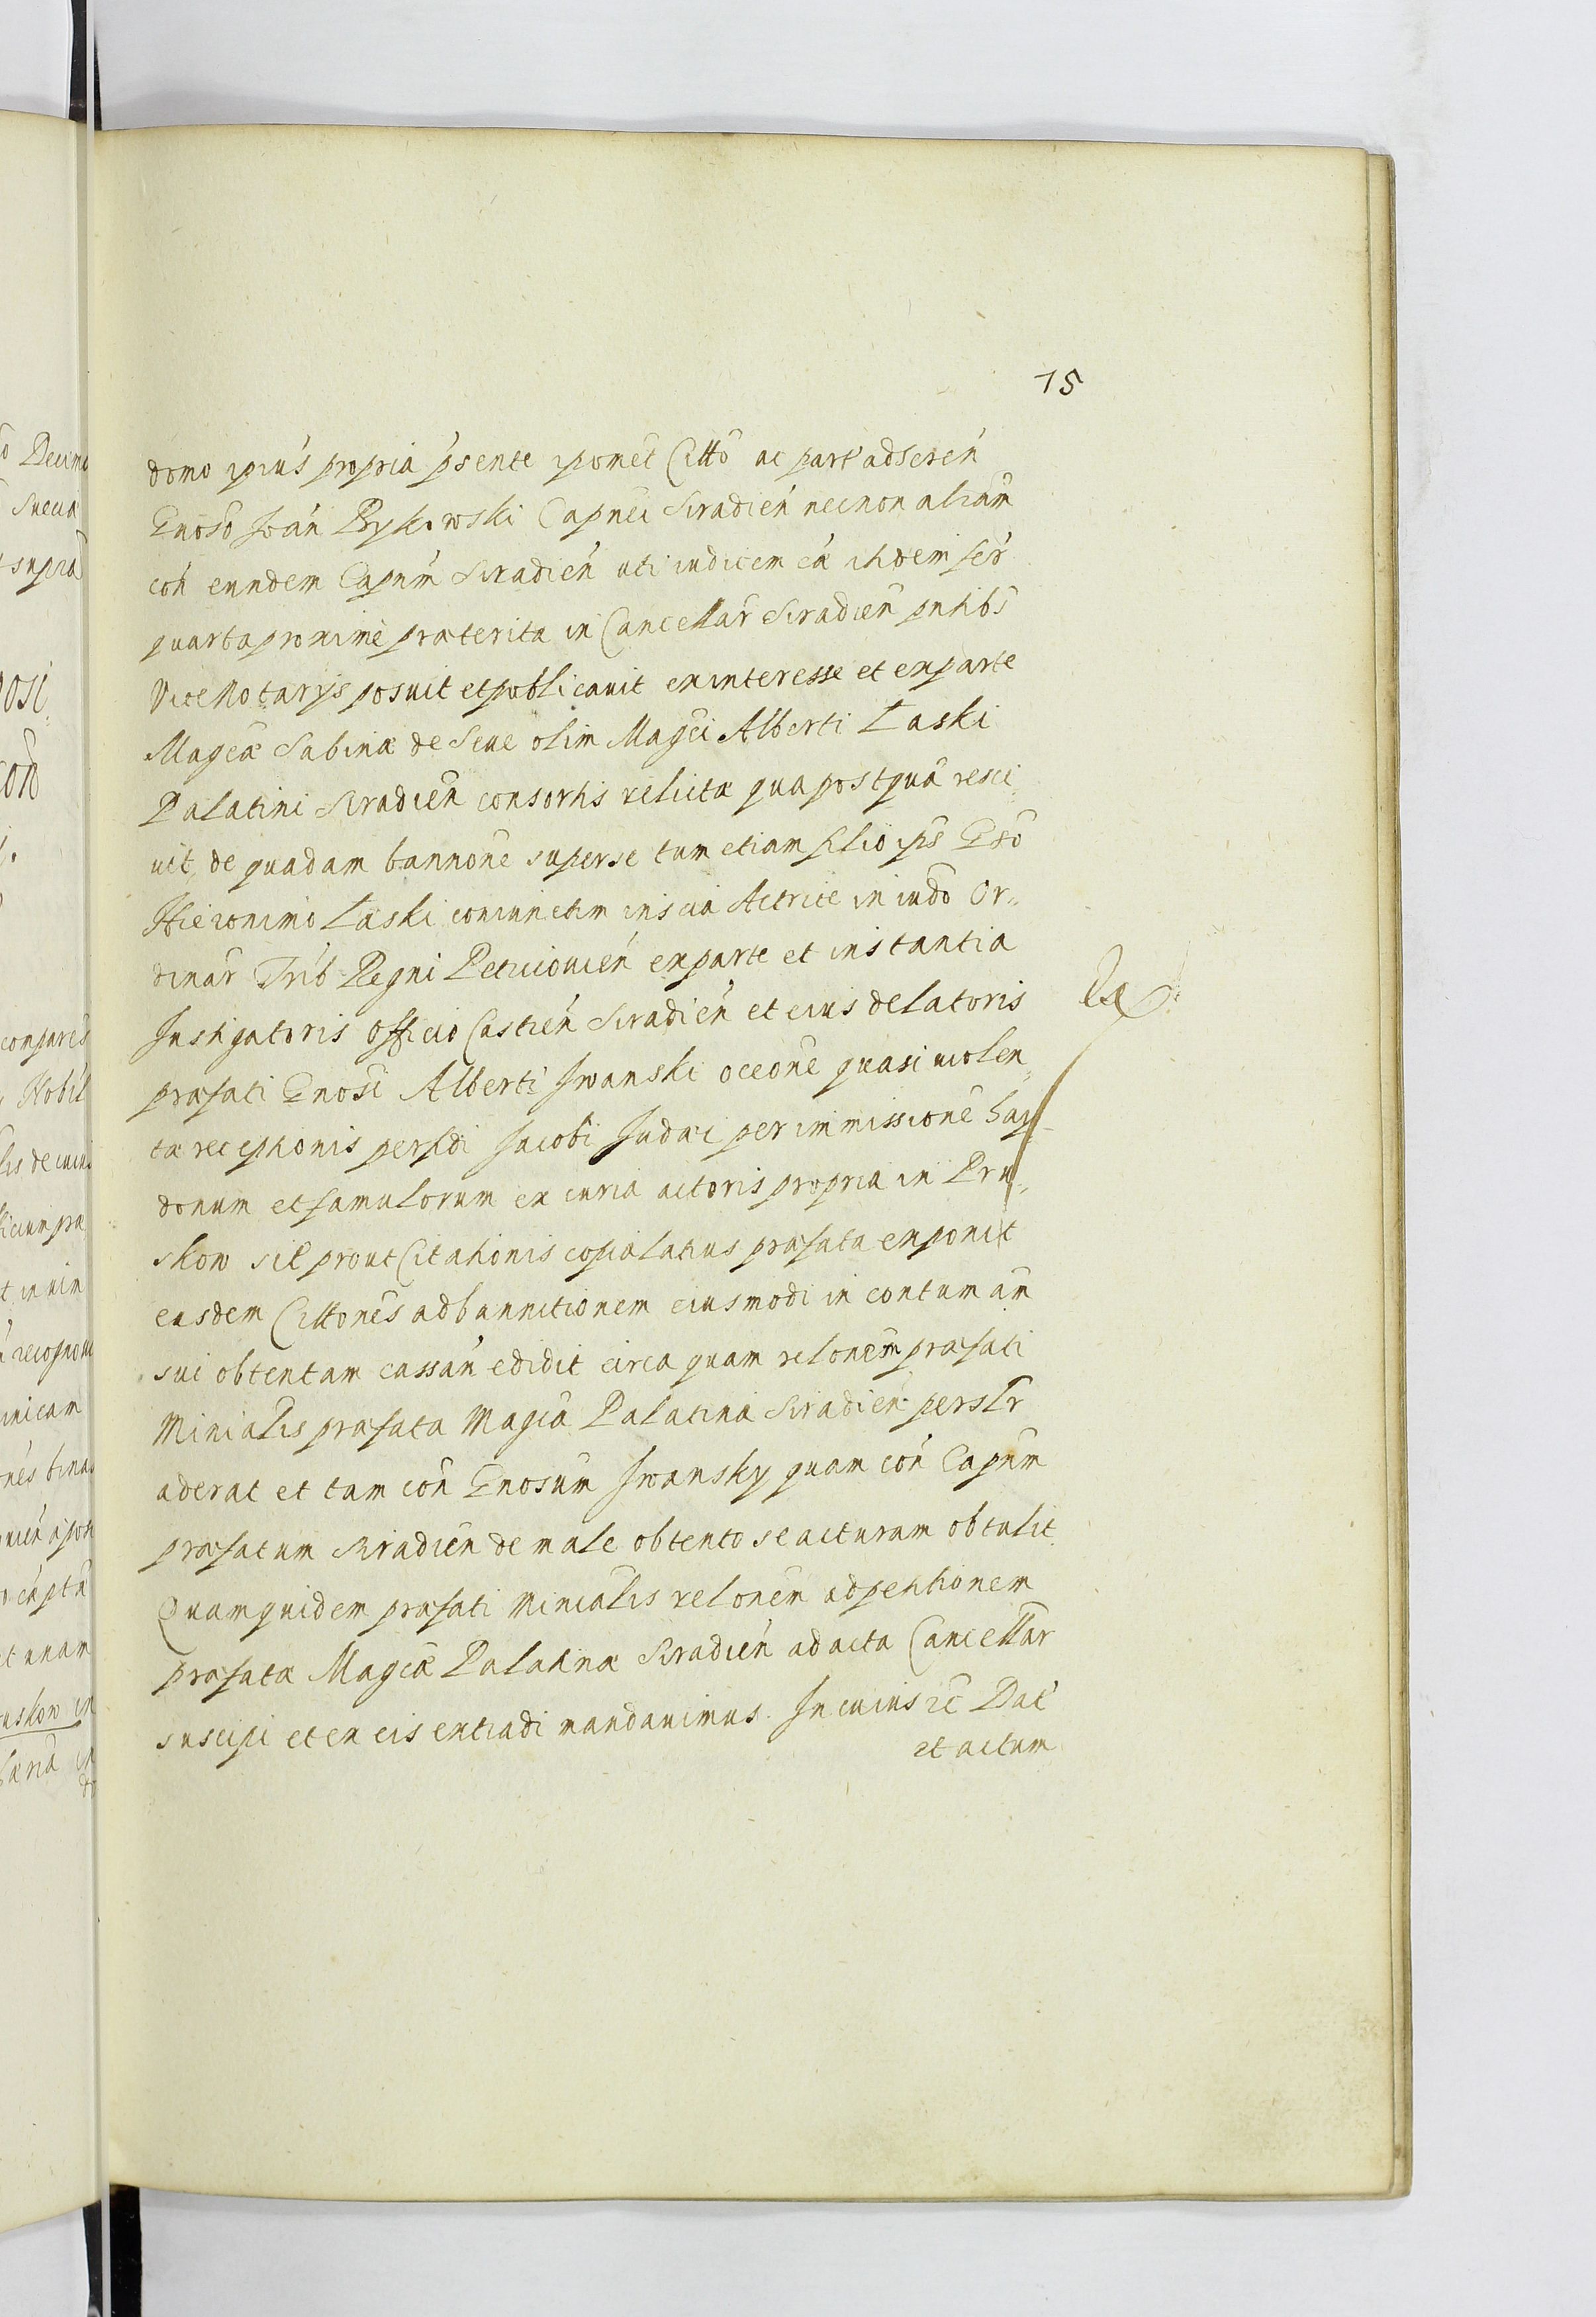 15
domo ipius propria psente ipomet Citto ac part adseren
Gnoso Joan Rykowski Capnei Siradien necnon aliam
con eundem Capnm Siradien uti iudicem ea ibidem fer
quarta proxime præterita in Cancellar Siradien pntibs
ViceNotarys posuit et publicavit ex interesse et ex parte
Magcæ Sabinæ de Seue olim Magci Alberti Laski
Palatini Siradien consortis relictæ quæ postqua resci„
uit, de quadam bannone super se tum etiam filio ips Gso
Hieronimo Laski coniunctim inscia Actrice in iudo Or„
dinar Trib Regni Petricouien ex parte et instantia
Instigatoris Officio Castren Siradien et eius delatoris
præfati Gnosi Alberti Iwanski occone quasi uiolen„
tæ receptionis perfidi Jacobi Judæi per immissione hay„
donum et famulorum ex curia actoris propria in Pru„
skow sit prout Citationis copia latius præfata exponit
easdem Cittones ad bannitionem eiusmodi in contumam
sui obtentam cassan edidit circa quam relonem præfati
Minialis præfata Magca Palatina Siradien perslr
aderat et tam con Gnosum Iwansky quam con Capnm
præfatum Siradien de male obtento se acturam obtulit
Quamquidem præfati Minialis relonem ad petitionem
præfatæ Magcæ Palatinæ Siradien ad acta Cancellar
suscipi et ex eis extradi mandauimus. In cuius rc Dat
et actum